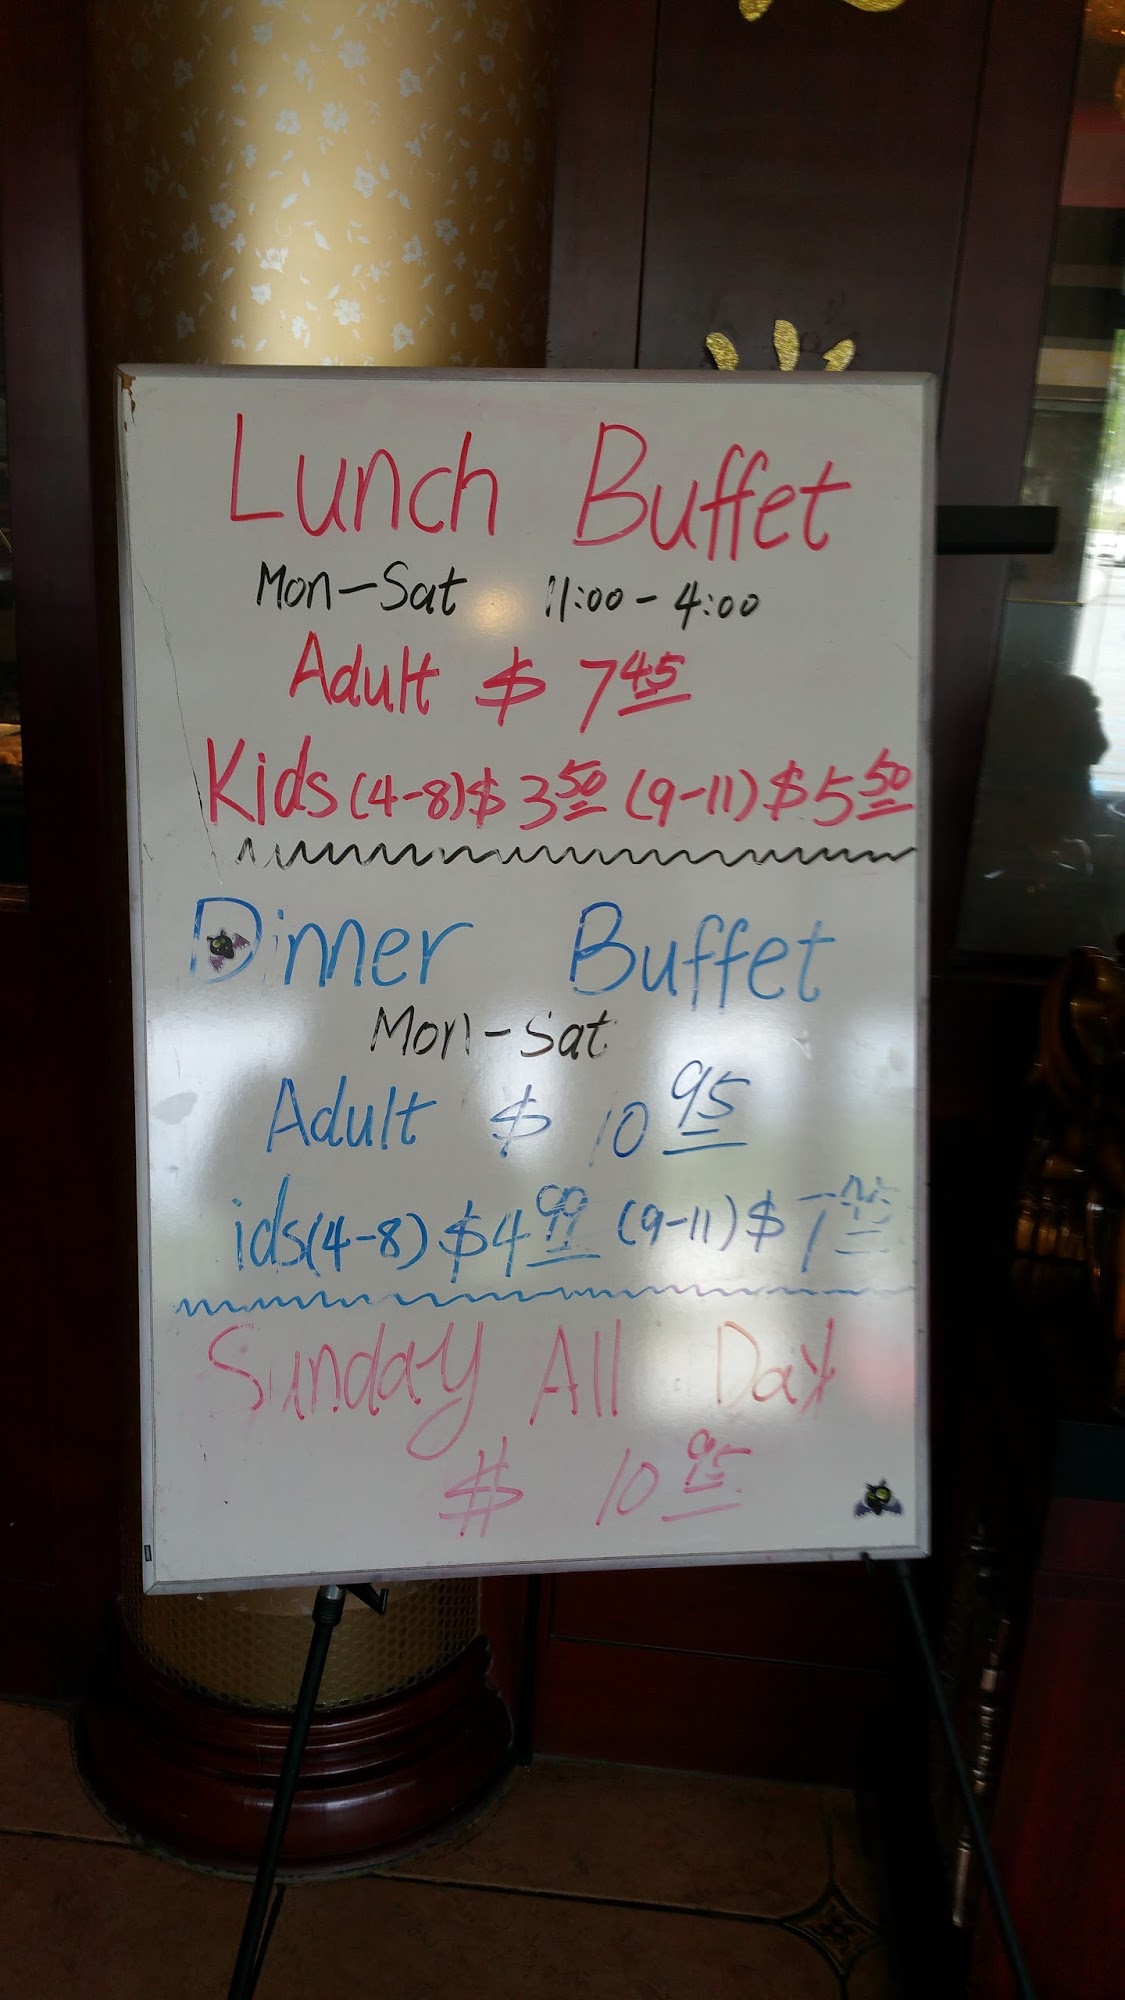 Lunch Buffet
Mon-Sat 11:00-4:00
Adult $ 7 45
Kids (4-8) $ 3 50 (9-11) $ 5 50
Dinner Buffet
Mon-Sat
Adult $ 10 95
ids (4-8) $ 4 99 (9-11) $ 7
Sunday All Day
$ 10 95